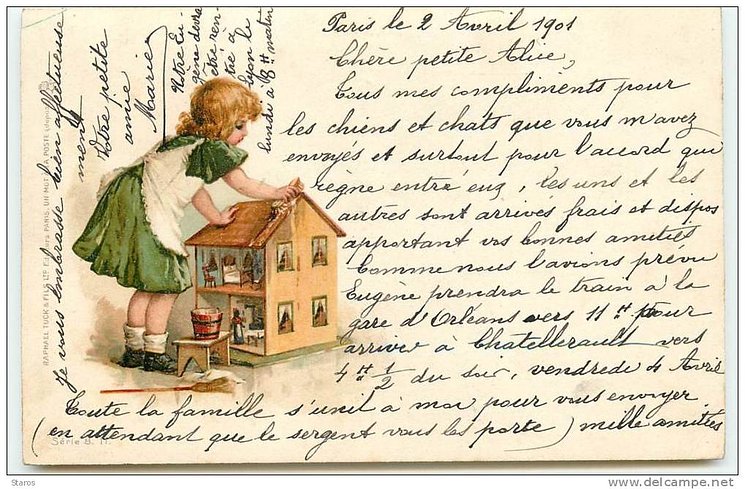 Paris le 2 Avril 1901
Chère petite Alice,
Tous mes compliments pour
les chiens et chats que vous m'avez
envoyés et surtout pour l'accord qui
règne entre eux, les uns et les
autres sont arrivés frais et dispos
apportant vos bonnes amitiés
Comme nous l'avions prévu
Eugène prendra le train à la
gare d'Orléans vers 11H pour
arriver à Chatellerault vers
4H 1/2 du soir, vendredi 4 Avril
Toute la famille s'unit à moi pour vous envoyer
(en attendant que le sergent vous les porte) mille amitiés
je vous embrasse bien affectueuse
ment
Votre petite
amie
Marie
Votre Eu
gène devra
être ren-
tré à
Lyon le
lundi à 8H matin
RAPHAEL TUCK & FILS LTD PARIS. UN MOT À LA POSTE
Série B. 11.
Staros
www.delcampe.net